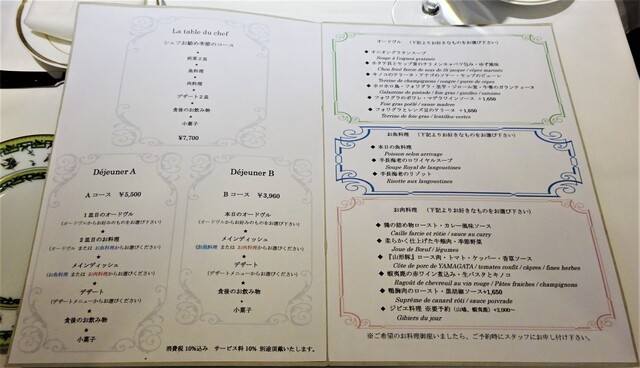 La table du chef
シェフお勧め季節のコース
◆
前菜2皿
◆
魚料理
◆
肉料理
◆
デザート2皿
◆
食後のお飲み物
◆
小菓子
¥7,700
Déjeuner A
A コース ¥5,500
1皿目のオードヴル
(オードヴルからお好みのものをお選び下さい)
◆
2皿目のお料理
(オードヴル または お魚料理からお選びください)
◆
メインディッシュ
(お魚料理 または お肉料理からお選びください)
◆
デザート
(デザートメニューからお選びください)
◆
食後のお飲み物
◆
小菓子
Déjeuner B
B コース ¥3,960
本日のオードヴル
(オードヴルからお好みのものをお選び下さい)
◆
メインディッシュ
(お魚料理 または お肉料理からお選びください)
◆
デザート
(デザートメニューからお選びください)
◆
食後のお飲み物
◆
小菓子
消費税 10%込み サービス料 10% 別途頂戴いたします。
オードヴル (下記よりお好きなものをお選び下さい)
◆ オニオングラタンスープ
Soupe à l'oignon gratinée
Chou frisé farcie de noix de St-jacque / cèpes marinés
◆ キノコのテリーヌ・アナゴのソテー・セップのピューレ
Terrine de champignons / congre / purée de cèpes
◆ ホロホロ鳥・フォワグラ・黒琴・ジロール茸・牛橫のガランティーヌ
Galantine de pintade / foie gras / girolles / sanvino
◆ フォワグラのポワレ・マデラワインソース +1,650
Foie gras poêlé / sauce madère
◆ フォワグラとレンズ豆のテリーヌ +1,650
Terrine de foie gras / lentilles vertes
お魚料理 (下記よりお好きなものをお選び下さい)
◆ 本日の魚料理
Poisson selon arrivage
◆ 手長海老のロワイヤルスープ
Soupe Royal de langoustines
◆ 手長海老のリゾット
Risotto aux langoustines
お肉料理 (下記よりお好きなものをお選び下さい)
◆ 鶉の詰め物ロースト・カレー風味ソース
Caille farcie et rôtie / sauce au curry
◆ 柔らかく仕上げた牛頬肉・季節野菜
Joue de Bœuf / légumes
◆ 『山形豚』ロース肉・トマト・ケッパー・香草ソース
Côte de porc de YAMAGATA / tomates confit / câpres / fines herbes
◆ 蝦夷鹿の赤ワイン煮込み・生パスタとキノコ
Ragoût de chevreuil au vin rouge / Pâtes fraiches / champignons
◆ 鴨胸肉のロースト・黒胡椒ソース+1,650
Suprême de canard rôti / sauce poivrade
◆ ジビエ料理 ※要予約 (山鳩、蝦夷鹿) +3,000～
Gibiers du jour
※ご希望のお料理御座いましたら、ご予約時にスタッフにお申し付け下さい。